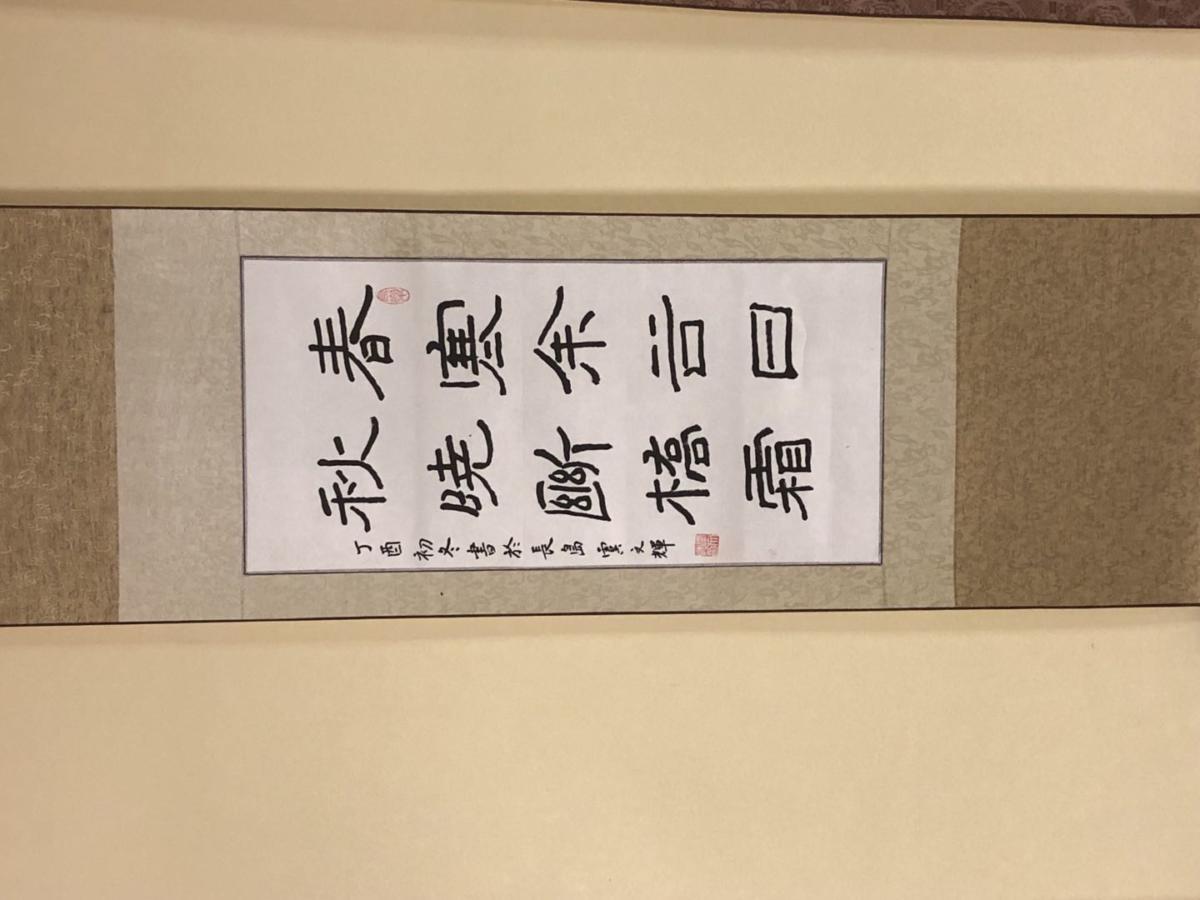 春寒余言曰
秋曉斷橋霜
丁酉初冬書於長島文輝